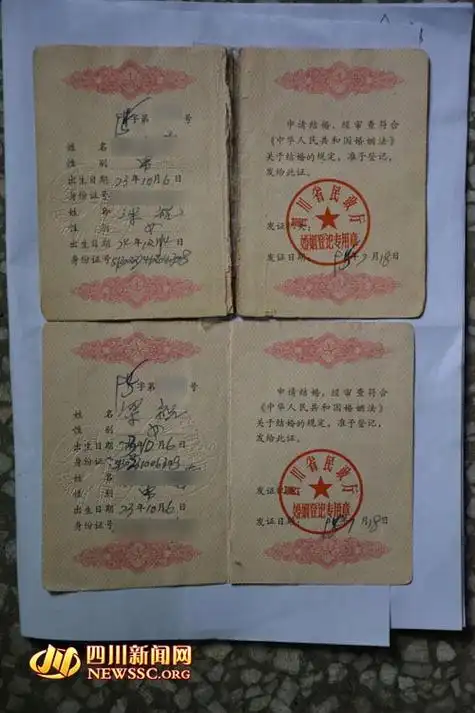 字第 号
姓 名
性 别
出生日期 23年10月6日
身份证号
姓 名 梁
性 别 女
出生日期
身份证号
申请结婚，经审查符合
《中华人民共和国婚姻法》
关于结婚的规定，准予登记，
发给此证。
发证机关：
四川省民政厅
婚姻登记专用章
发证日期： 年9月18日
字第 号
姓 名 梁
性 别 女
出生日期 10月6日
身份证号
姓 名
性 别
出生日期 23年10月6日
身份证号
申请结婚，经审查符合
《中华人民共和国婚姻法》
关于结婚的规定，准予登记，
发给此证。
发证机关
四川省民政厅
婚姻登记专用章
发证日期： 月18日
四川新闻网
NEWSSC.ORG